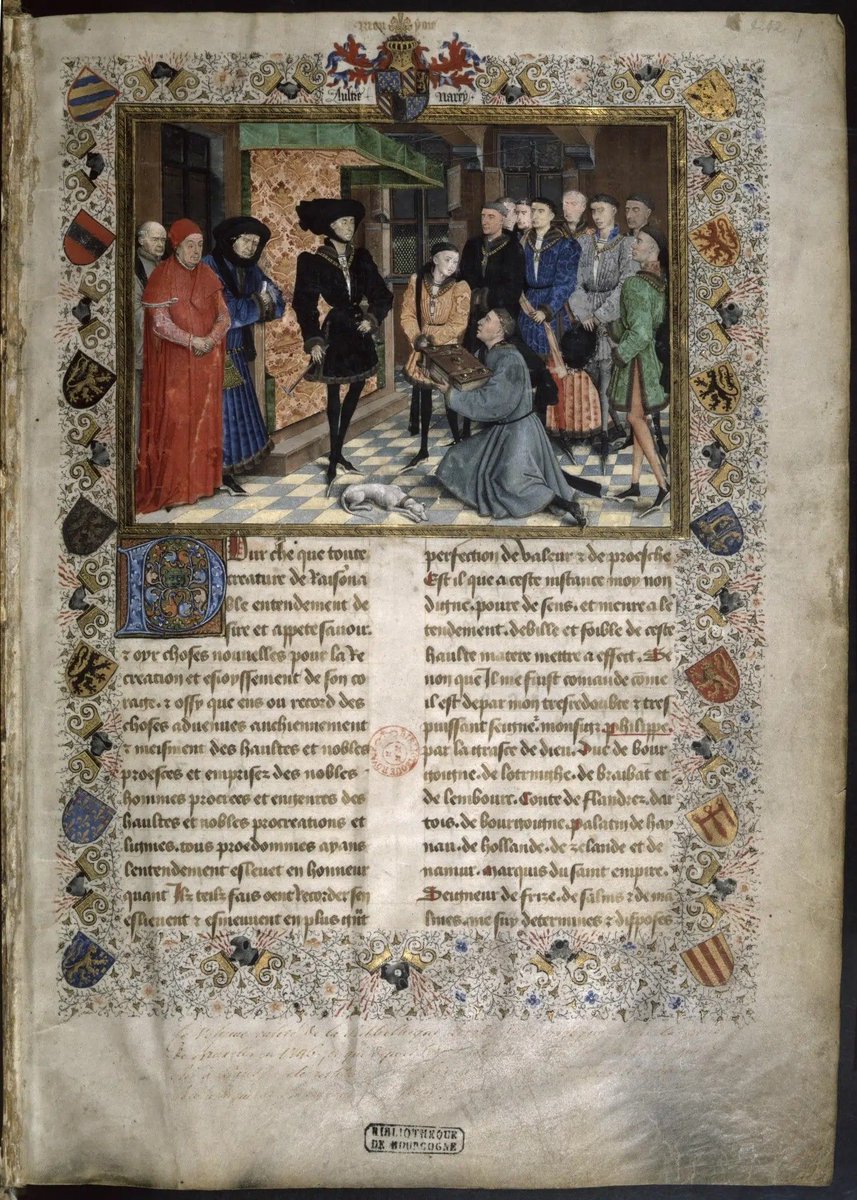 Mon Joie
Aultre Narey
Pour che que toute
creature de Raisona
ble entendement de
sire et appete savoir
& oyr choses nouvelles pour la Re
creation et esioyssement de son co
rage. & ossy que ens ou record des
choses advenues anchiennement
& meisment des haultes et nobles
proesces et emprises des nobles
hommes procrees et engenres des
haultes et nobles procreations et
lignies. tous proedommes ayans
lentendement eslevet en honneur
quant Ilz telz fais oent Recorder sen
eslievent & esmeuvent en plus gñt
perfection de valeur & de proesche
Est il que a ceste instance moy non
digne. povre de sens. et menre a le
tendement. debille et foible de ceste
haulte matere mettre a effect. Se
non que Il me fuist comande cõme
il est de par mon tresredoubte & tres
puissant seignr̃. monsigr̃ phelippe.
par la grasce de dieu. Duc de bour
goigne. de lotrijghe. de braibat et
de lembourc. Conte de flandrez. dar
tois. de bourgoigne. palatin de hay
nau. de hollande. de zelande et de
namur. Marquis du saint empire.
Seigneur de frize. de salins & de ma
lines. que suy determines & disposes
BIBLIOTHEQUE
DE BOURGOGNE